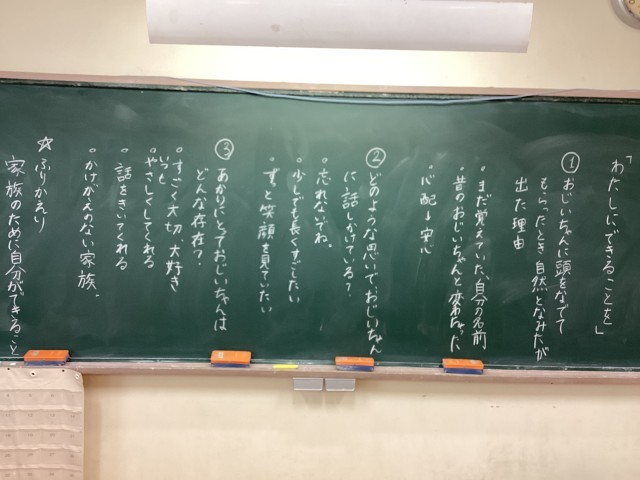 「わたしにできることを」
① おじいちゃんに頭をなでて
もらったとき 自然となみだが
出た理由
・まだ覚えていた、自分の名前
・昔のおじいちゃんと変わらな
・心配→安心
② どのような思いで、おじいちゃん
に話しかけている？
・忘れないでね。
・少しでも長くすごしたい
・ずっと笑顔を見ていたい
③ あかりにとっておじいちゃんは
どんな存在？
・すごく大切 大好き
いつもやさしくしてくれる
・話をきいてくれる
・かけがえのない家族。
☆ふりかえり
家族のために自分ができること